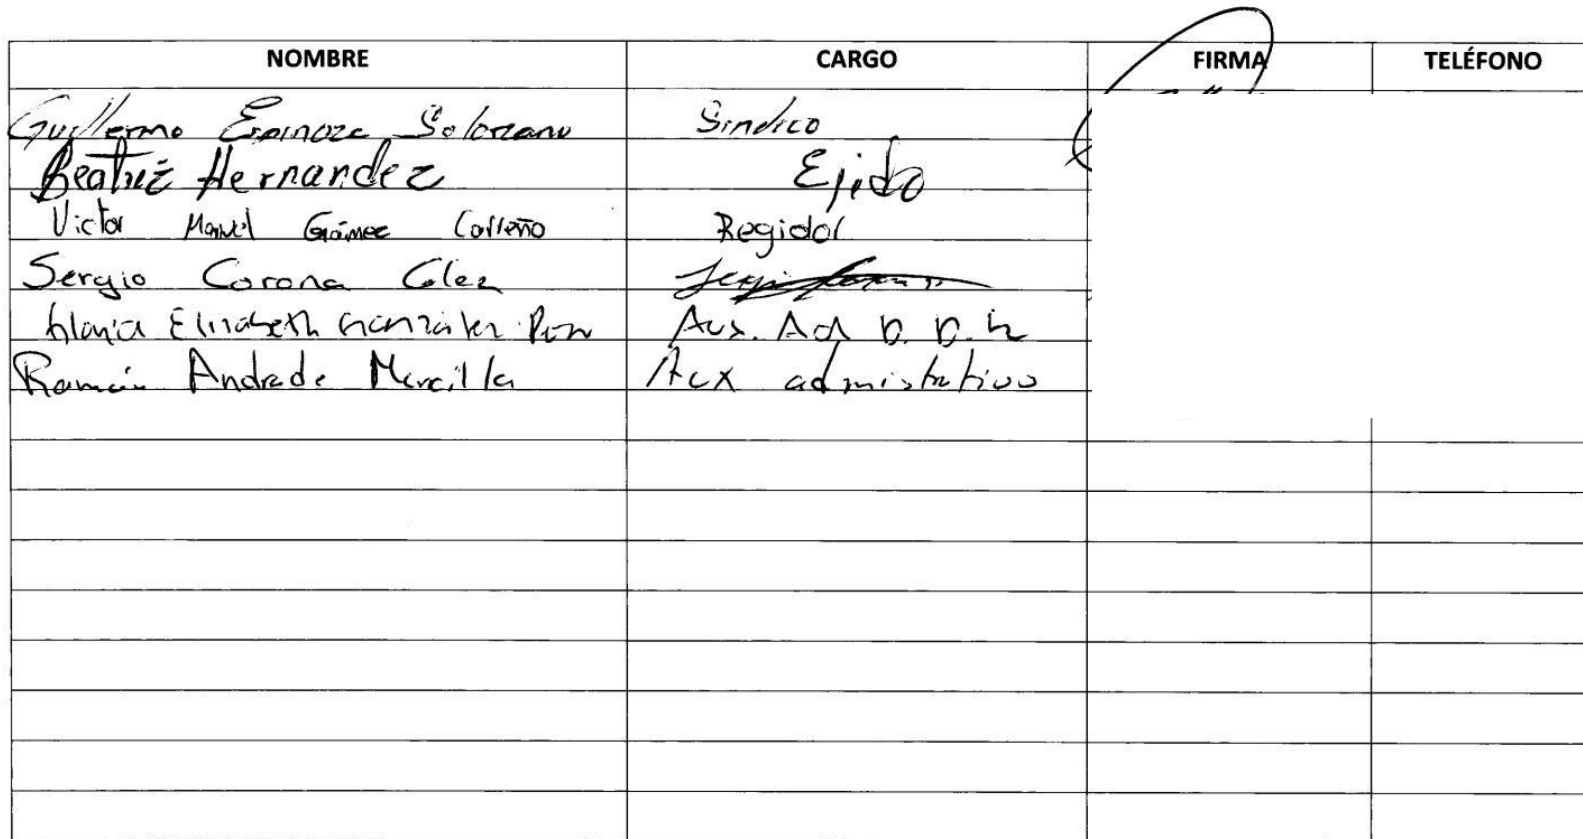 NOMBRE CARGO FIRMA TELÉFONO
Guillermo Espinoza Solorzano Sindico
Beatriz Hernandez Ejido
Victor Manuel Gómez Carreño Regidor
Sergio Corona Glez
Elizabeth González Aux. Ad D. D. h
Ramón Andrade Aux admistrativo